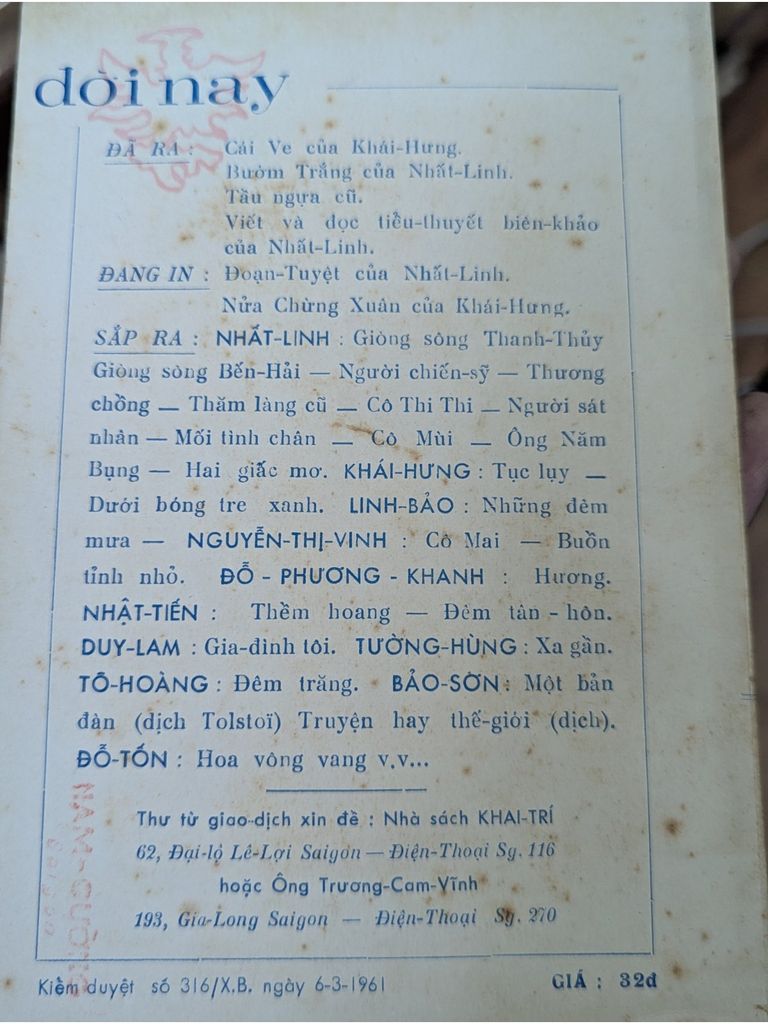 đời nay
ĐÃ RA : Cái Ve của Khái-Hưng.
Bướm Trắng của Nhất-Linh.
Tầu ngựa cũ.
Viết và đọc tiểu-thuyết biên-khảo
của Nhất-Linh.
ĐANG IN : Đoạn-Tuyệt của Nhất-Linh.
Nửa Chừng Xuân của Khái-Hưng.
SẮP RA : NHẤT-LINH : Giòng sông Thanh-Thủy
Giòng sông Bến-Hải — Người chiến-sỹ — Thương
chồng — Thăm làng cũ — Cô Thi Thi — Người sát
nhân — Mối tình chân — Cô Mùi — Ông Năm
Bụng — Hai giấc mơ. KHÁI-HƯNG : Tục lụy —
Dưới bóng tre xanh. LINH-BẢO : Những đêm
mưa — NGUYỄN-THỊ-VINH : Cô Mai — Buồn
tỉnh nhỏ. ĐỖ - PHƯƠNG - KHANH : Hương.
NHẬT-TIẾN : Thềm hoang — Đêm tân - hôn.
DUY-LAM : Gia-đình tôi. TƯỜNG-HÙNG : Xa gần.
TÔ-HOÀNG : Đêm trăng. BẢO-SƠN : Một bản
đàn (dịch Tolstoï) Truyện hay thế-giới (dịch).
ĐỖ-TỐN : Hoa vông vang v.v...
Thư từ giao-dịch xin đề : Nhà sách KHAI-TRÍ
62, Đại-lộ Lê-Lợi Saigon — Điện-Thoại Sg. 116
hoặc Ông Trương-Cam-Vĩnh
193, Gia-Long Saigon — Điện-Thoại Sg. 270
Kiểm duyệt số 316/X.B. ngày 6-3-1961
GIÁ : 32đ
NAM-CƯỜNG
Saigon